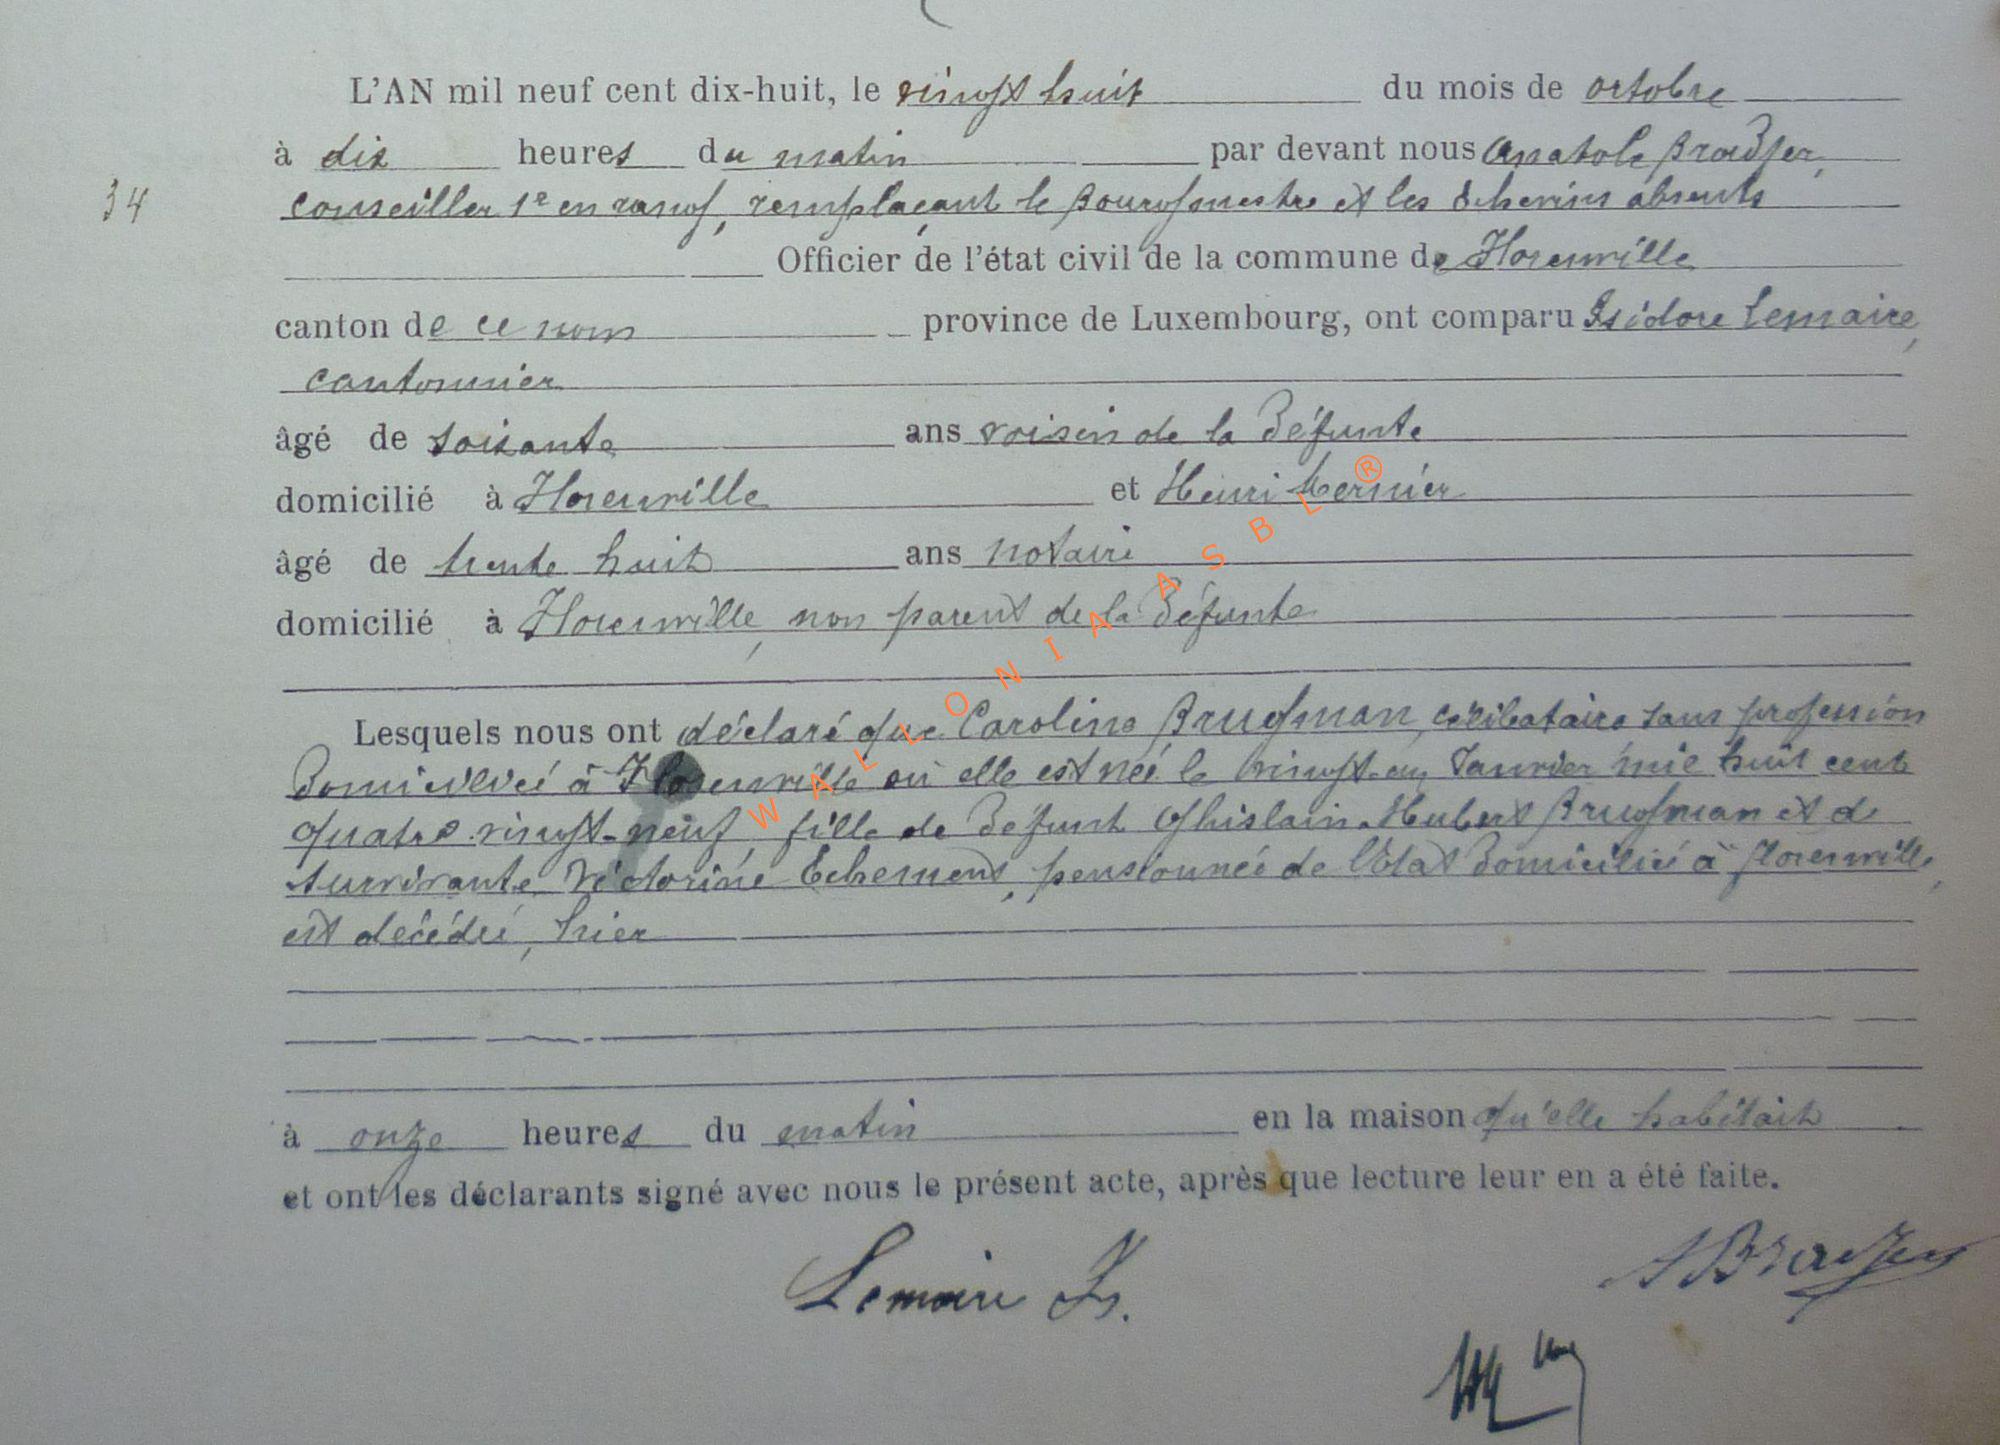 L'AN mil neuf cent dix-huit, le vingt huit du mois de octobre
à dix heures du matin par devant nous Anatole Bradfer,
34
conseiller 1er en rang, remplaçant le Bourgmestre et les Echevins absents
Officier de l'état civil de la commune de Florenville
canton de ce nom province de Luxembourg, ont comparu Isidore Lemaire,
cantonnier
âgé de soixante ans voisin de la défunte
domicilié à Florenville et Henri Mernier
âgé de trente huit ans notaire
domicilié à Florenville, non parent de la défunte
Lesquels nous ont déclaré que Caroline Brugman, célibataire sans profession
domiciliée à Florenville où elle est née le vingt-un Janvier mil huit cent
quatre vingt-neuf, fille de défunt Ghislain-Hubert Brugman et de
survivante Victorine, pensionnée de l'Etat domiciliée à Florenville,
est décédée, hier
à onze heures du matin en la maison qu'elle habitait
et ont les déclarants signé avec nous le présent acte, après que lecture leur en a été faite.
Lemaire Is.
A Bradfer
WALLONIA ASBL®